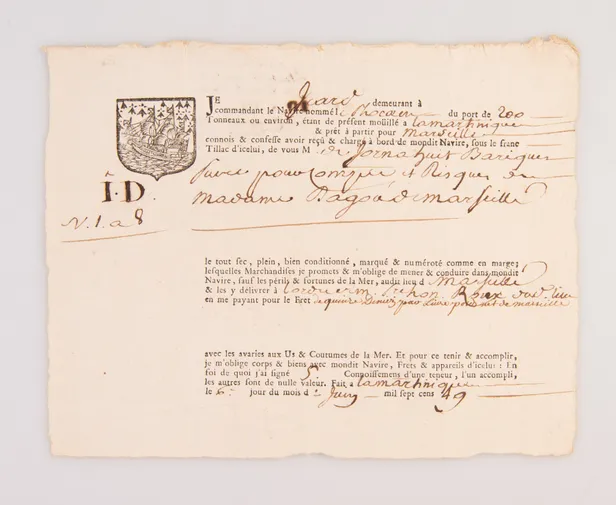 JE demeurant à
commandant le Navire nommé le Phocéen du port de 200
Tonneaux ou environ, étant de présent mouillé a Lamartinique
& prêt à partir pour Marseille
connois & confesse avoir reçû & chargé à bord de mondit Navire, sous le franc
Tillac d'icelui, de vous M huit Bariques
Sucre pour Compte et Risques de
Madame de marseille
I·D
N. 1. a 8
le tout sec, plein, bien conditionné, marqué & numéroté comme en marge;
lesquelles Marchandises je promets & m'oblige de mener & conduire dans mondit
Navire, sauf les périls & fortunes de la Mer, audit lieu d marseille
& les y délivrer à Roux lieu
en me payant pour le Fret de quinze deniers pour Livre poids de marseille
avec les avaries aux Us & Coutumes de la Mer. Et pour ce tenir & accomplir,
je m'oblige corps & biens avec mondit Navire, Frets & appareils d'icelui: En
foi de quoi j'ai signé 5 Connoissemens d'une teneur, l'un accompli,
les autres sont de nulle valeur. Fait a Lamartinique
le 6 jour du mois de Juin mil sept cens 49